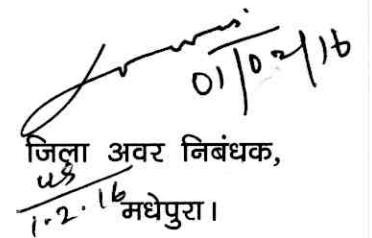 01/02/16
जिला अवर निबंधक,
1.2.16
मधेपुरा।